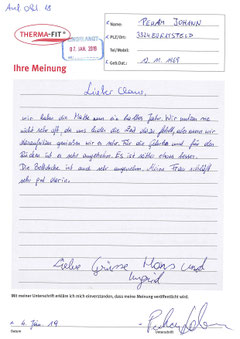 THERMA-FIT®
07. JAN. 2019
Name: PEHAM JOHANN
PLZ/Ort: 3324 EURATSFELD
Tel/Mobil:
Geb.Dat.: 12. 11. 1969
Ihre Meinung
Lieber Claus,
wir haben die Matte nun ein halbes Jahr. Wir nutzen sie
nicht sehr oft, da uns leider die Zeit dazu fehlt, aber wenn wir
genießen wir es sehr. Für die Gelenke und für den
Rücken ist es sehr angenehm. Es ist etwas besser.
Die Bettdecke ist auch sehr angenehm. Meine Frau schläft
sehr gut darin.
Liebe Grüsse Hans und
Ingrid
Mit meiner Unterschrift erkläre ich mich einverstanden, dass meine Meinung veröffentlicht wird.
4. Jän. 19
Datum
Unterschrift